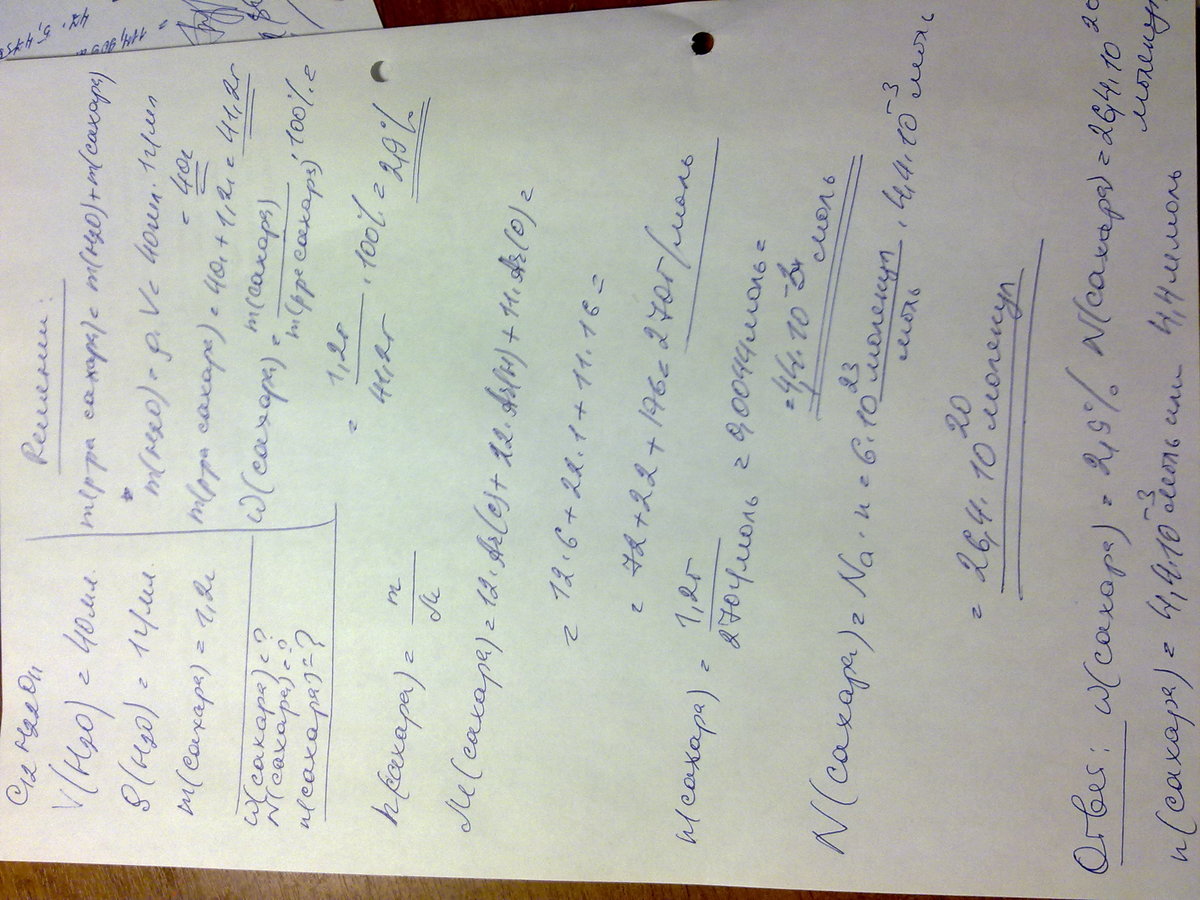 C12 H22O11
V(H2O) = 40мл.
ρ(H2O) = 1г/мл
m(сахара) = 1,2г
W(сахара) = ?
N(сахара) = ?
n(сахара) = ?
Решение:
m(р-ра сахара) = m(H2O)+m(сахара)
m(H2O) = ρ·V = 40мл·1г/мл
= 40г
m(р-ра сахара) = 40г+1,2г = 41,2г
W(сахара) = m(сахара)
m(р-ра сахара) ·100% =
= 1,2г
41,2г ·100% = 2,9%
n(сахара) = m
M
M(сахара) = 12·Ar(C)+22·Ar(H)+11·Ar(O) =
= 12·6+22·1+11·16 =
= 72+22+176 = 270г/моль
n(сахара) = 1,2г
270г/моль = 0,0044моль =
= 4,4·10⁻³ моль
N(сахара) = Na·n = 6·10²³ молекул
моль · 4,4·10⁻³ моль
= 26,4·10²⁰ молекул
Ответ: W(сахара) = 2,9% N(сахара) = 26,4·10²⁰
молекул
n(сахара) = 4,4·10⁻³ моль или 4,4 ммоль